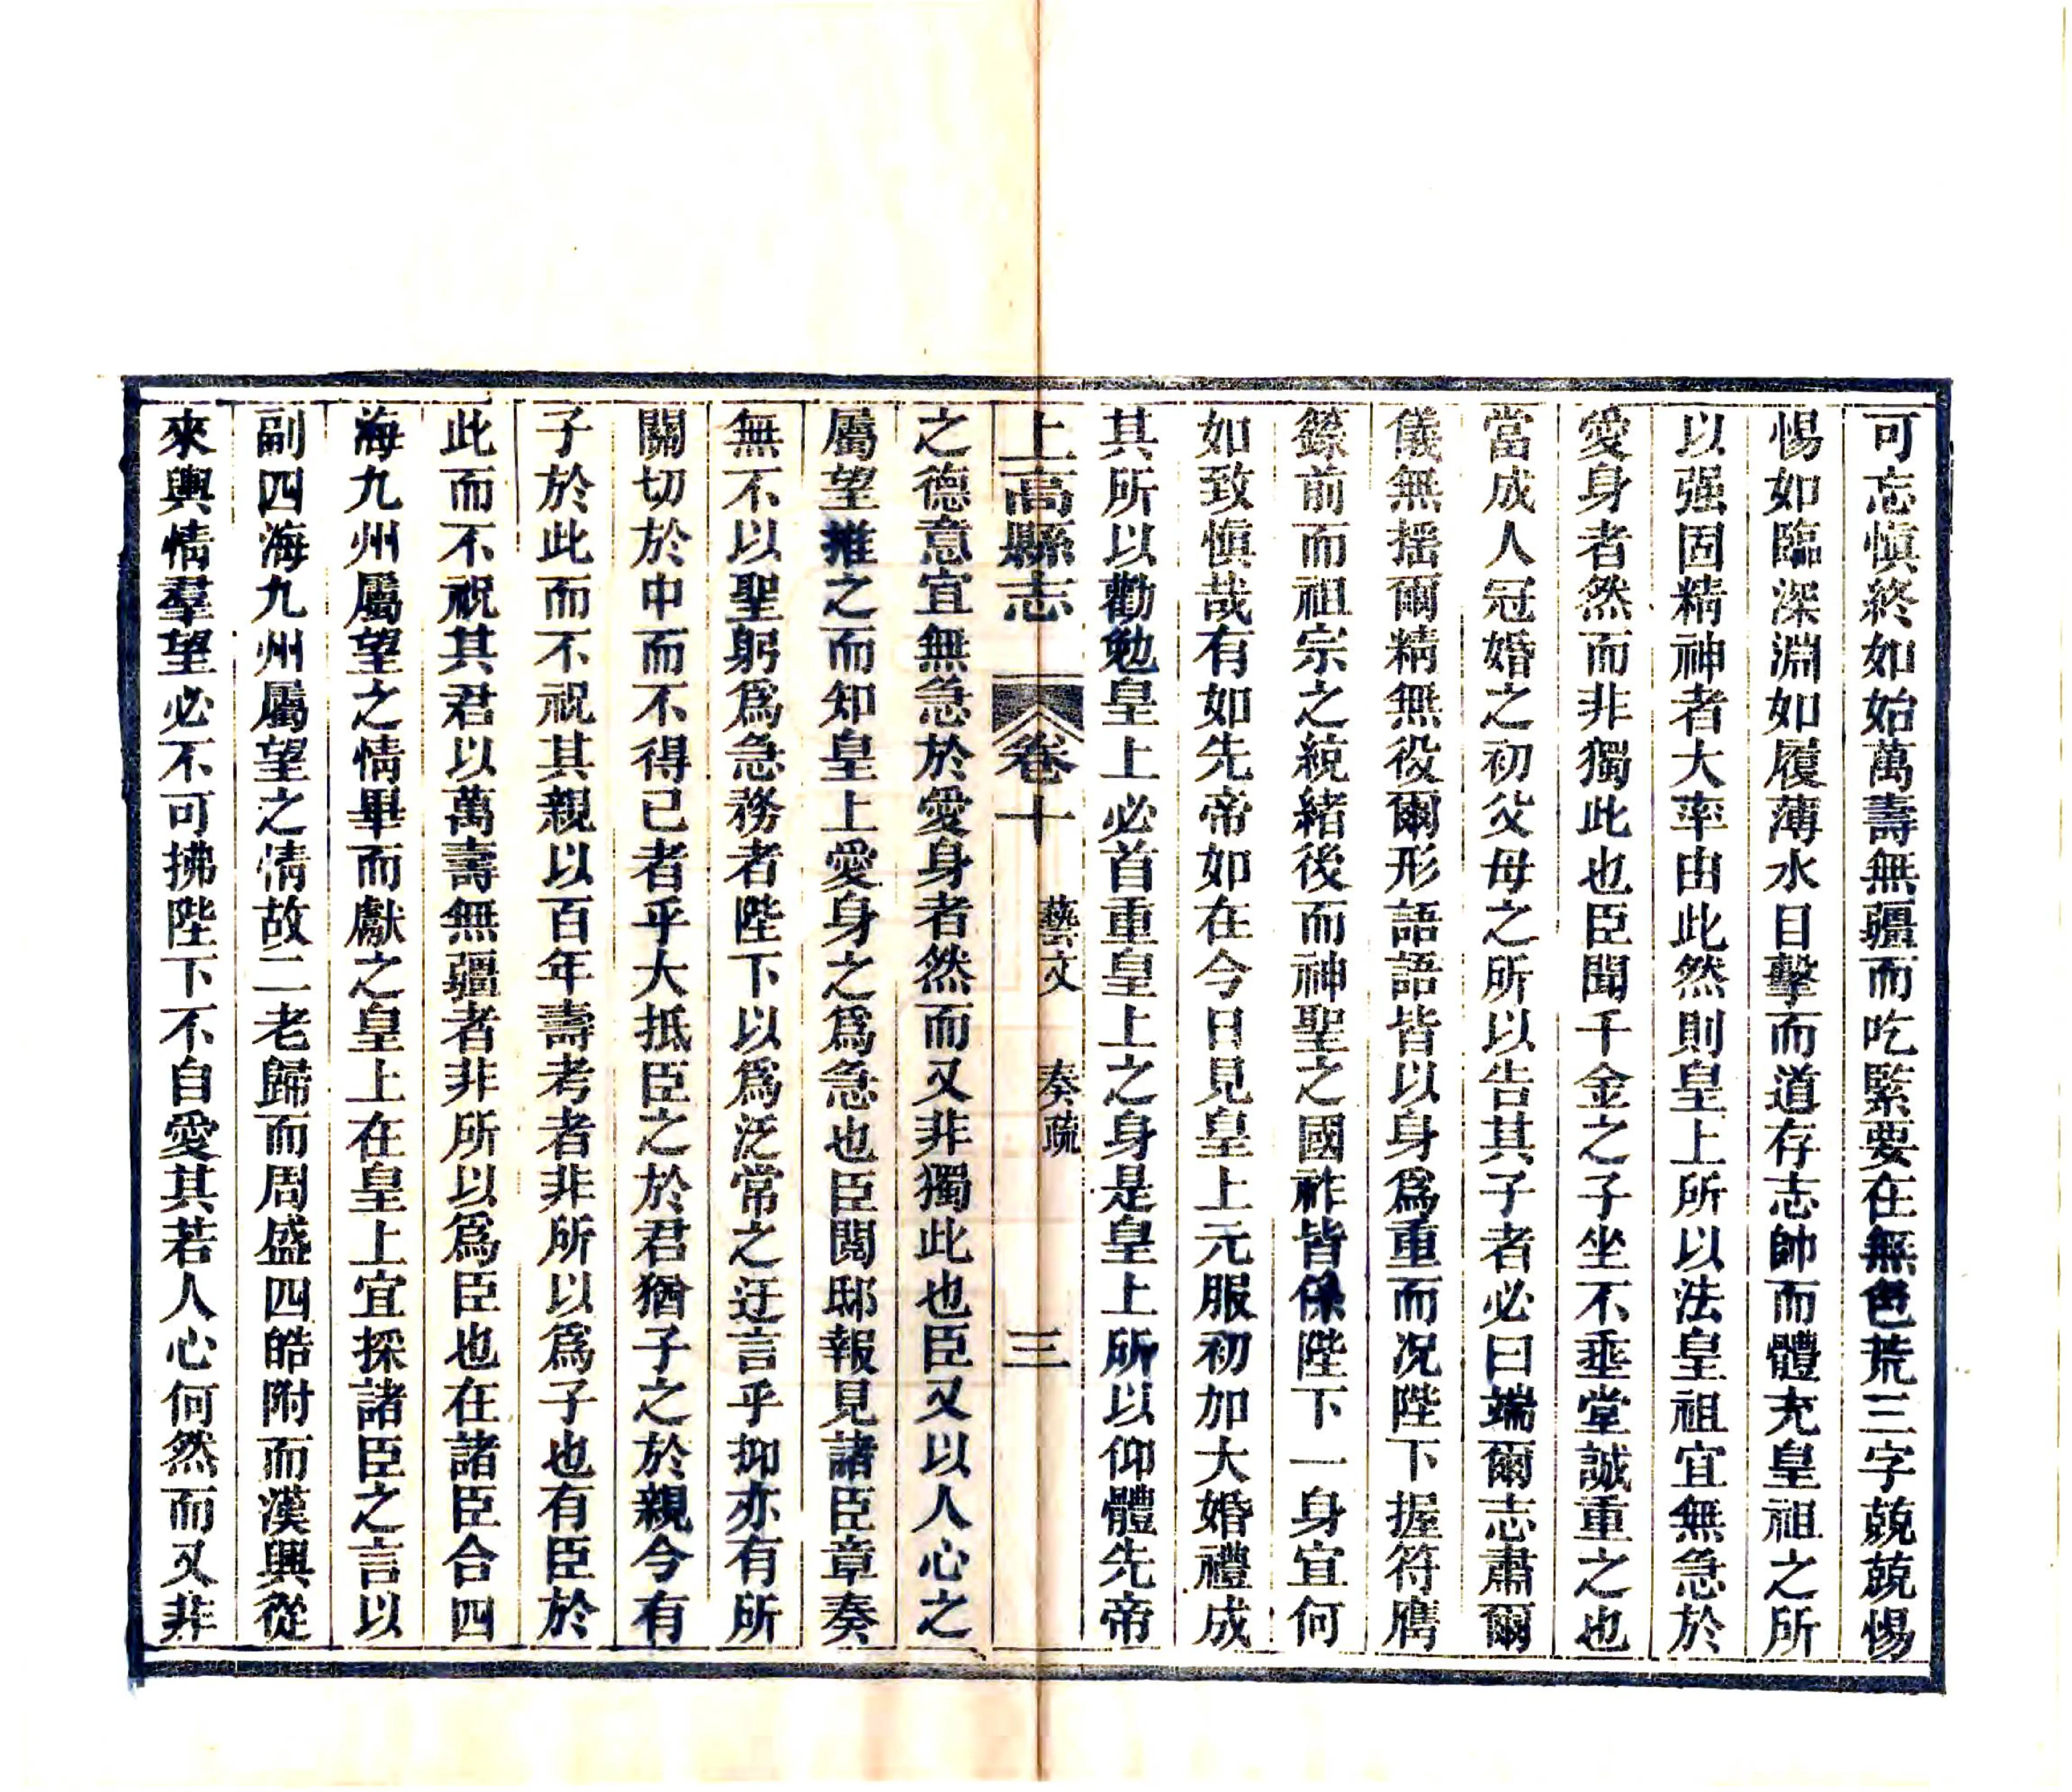 可忘慎終如始萬壽無疆而吃緊要在無色荒三字兢兢惕
惕如臨深淵如履薄氷目擊而道存志帥而體充皇祖之所
以强固精神者大率由此然則皇上所以法皇祖宜無急於
愛身者然而非獨此也臣聞千金之子坐不垂堂誠重之也
當成人冠婚之初父母之所以告其子者必曰端爾志肅爾
儀無揺爾精無役爾形語語皆以身爲重而况陛下握符膺
籙前而祖宗之統緒後而神聖之國祚皆係陛下一身宜何
如致慎哉有如先帝如在今日見皇上元服初加大婚禮成
其所以勸勉皇上必首重皇上之身是皇上所以仰體先帝
上高縣志 卷十 藝文 奏疏 三
之德意宜無急於愛身者然而又非獨此也臣又以人心之
屬望推之而知皇上愛身之爲急也臣閱邸報見諸臣章奏
無不以聖躬爲急務者陛下以爲泛常之迂言乎抑亦有所
關切於中而不得已者乎大抵臣之於君猶子之於親今有
子於此而不祝其親以百年壽考者非所以爲子也有臣於
此而不祝其君以萬壽無疆者非所以爲臣也在諸臣合四
海九州屬望之情畢而獻之皇上在皇上宜採諸臣之言以
副四海九州屬望之情故二老歸而周盛四皓附而漢興從
來輿情羣望必不可拂陛下不自愛其若人心何然而又非